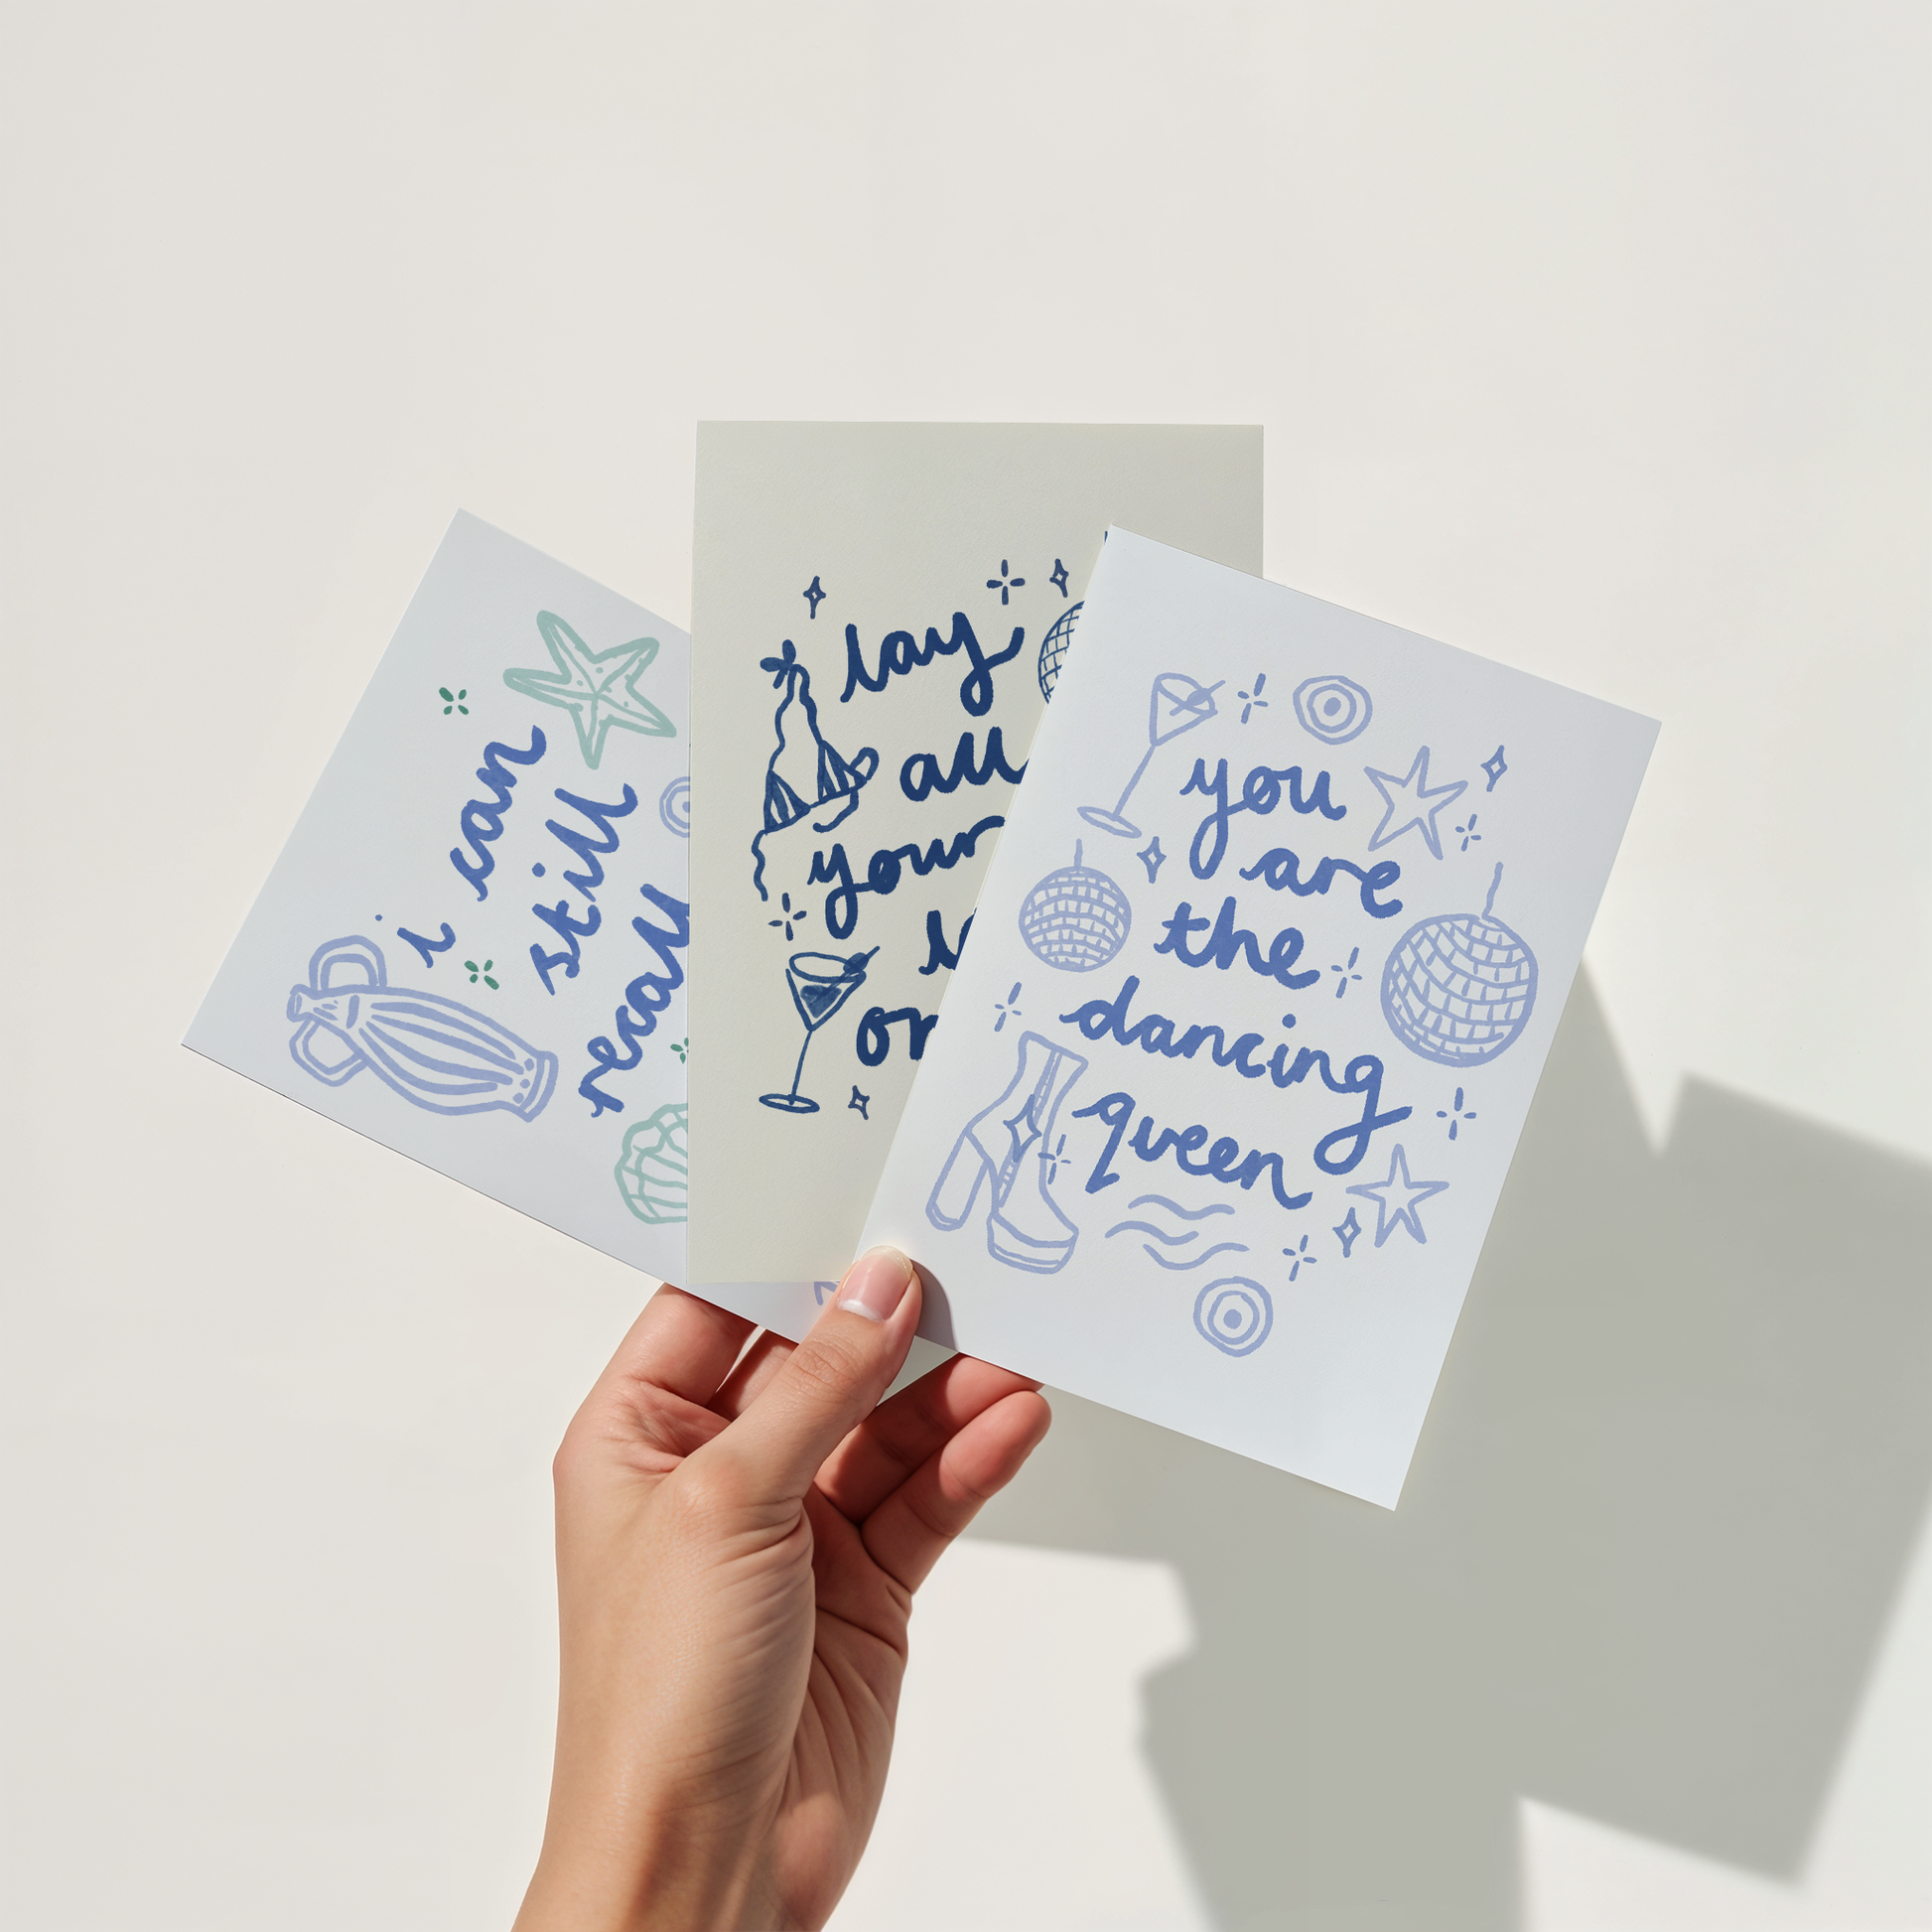 i can
still
recall
lay
all
your
you
are
the
dancing
queen